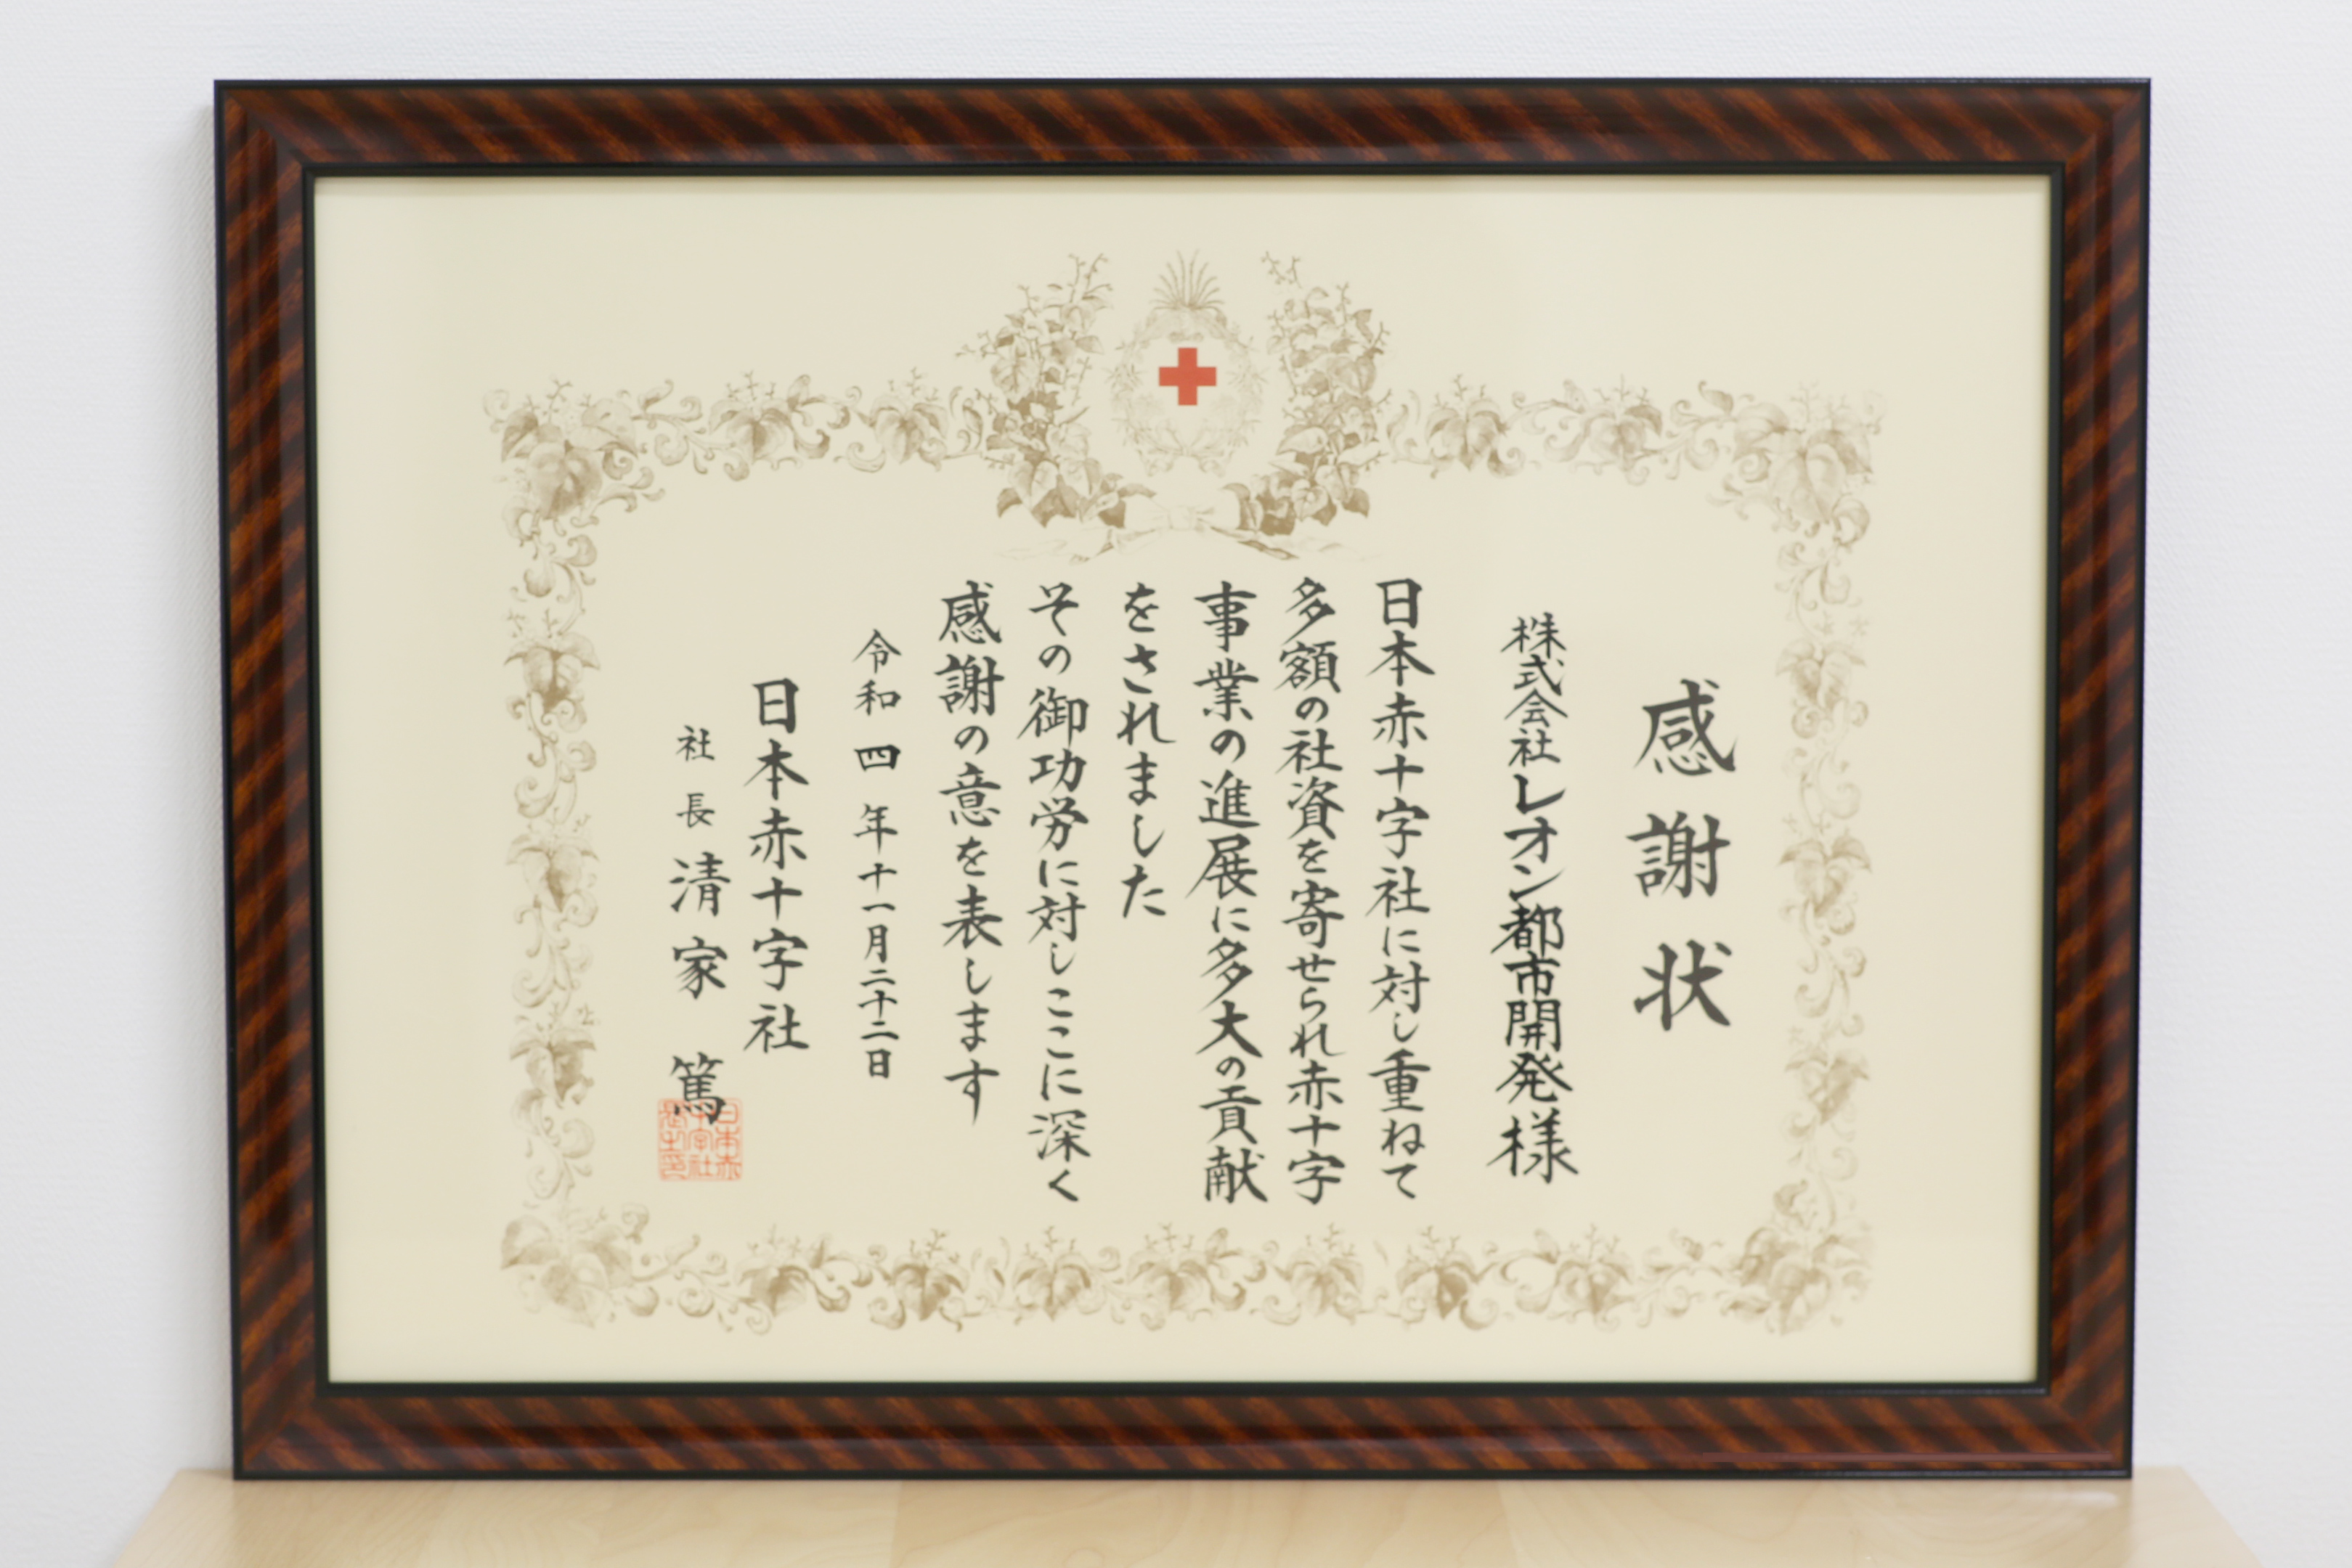 感謝状
株式会社レオン都市開発様
日本赤十字社に対し重ねて
多額の社資を寄せられ赤十字
事業の進展に多大の貢献
をされました
その御功労に対しここに深く
感謝の意を表します
令和四年十一月二十二日
日本赤十字社
社長清家篤